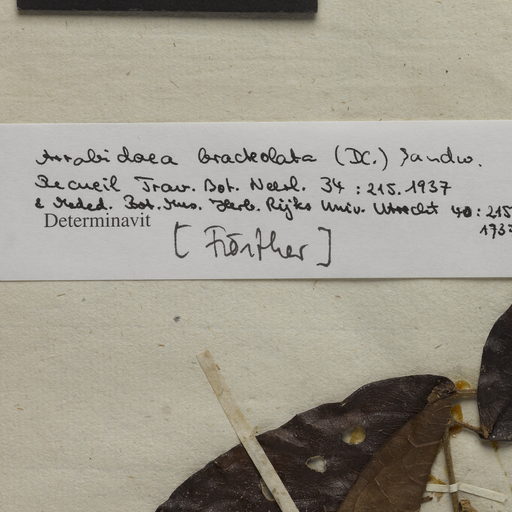 Arrabidaea bracteolata (DC.) Sandw.
Recueil Trav. Bot. Neerl. 34 : 215. 1937
& Meded. Bot. Mus. Herb. Rijks Univ. Utrecht 40 : 215
1937
Determinavit
[Förther]